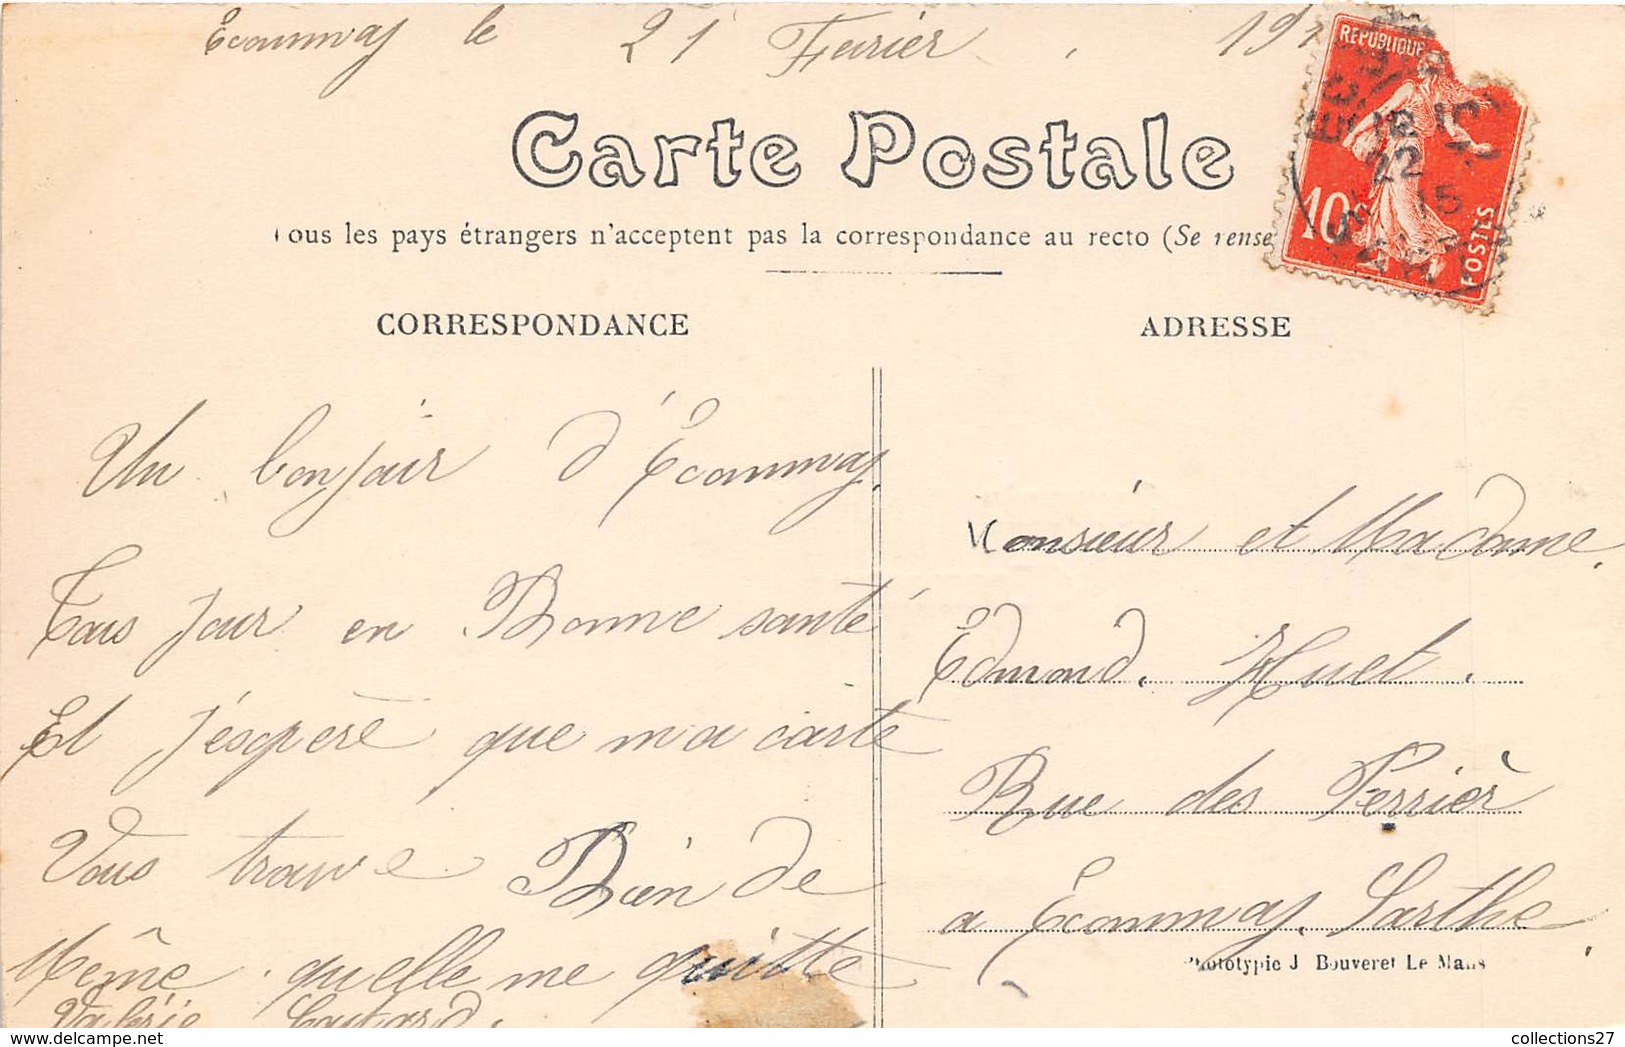 Ecommoy le 21 Fevrier 191
REPUBLIQUE
10 22 15
10c
POSTES
Carte Postale
Tous les pays étrangers n'acceptent pas la correspondance au recto (Se rense
CORRESPONDANCE
ADRESSE
Un bonjour d'Ecommoy.
Tous jour en Bonne santé
Et j'éspère que ma carte
Vous trouve Bien de
Même quelle me quitte
Valérie
Monsieur et Madame
Edmond Huet.
Rue des Perrièr
a Ecommoy. Sarthe
Phototypie J Bouveret Le Mans
collections27